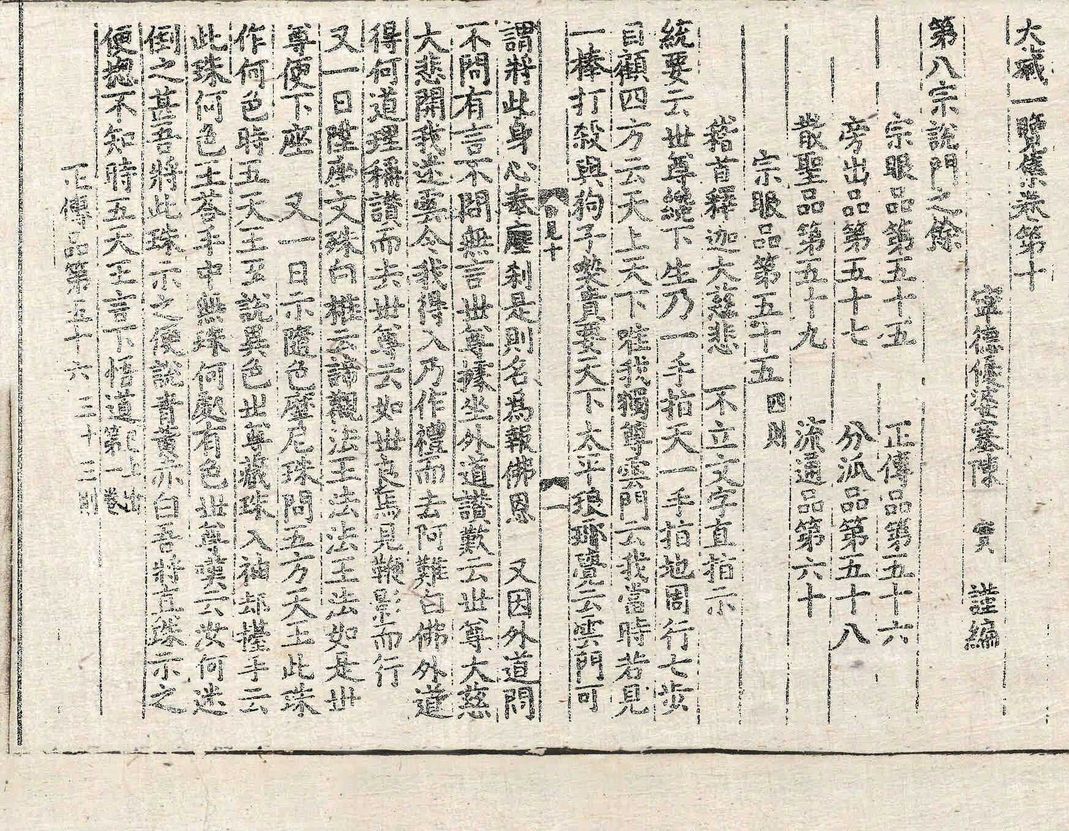 大藏一覽集卷第十
寧德優婆塞陳　實　謹編
第八宗說門之餘
宗眼品第五十五　正傳品第五十六
旁出品第五十七　分派品第五十八
散聖品第五十九　流通品第六十
宗眼品第五十五 四則
稽首釋迦大慈悲　不立文字直指示
統要云世尊纔下生乃一手指天一手指地周行七步
目顧四方云天上天下唯我獨尊雲門云我當時若見
一棒打殺與狗子喫貴要天下太平琅瑘覺云雲門可
謂將此身心奉塵刹是則名爲報佛恩　又因外道問
不問有言不問無言世尊據坐外道讃歎云世尊大慈
大悲開我迷雲令我得入乃作禮而去阿難白佛外道
得何道理稱讃而去世尊云如世良馬見鞭影而行
又一日陞座文殊白槌云諦觀法王法法王法如是世
尊便下座　又一日示隨色摩尼珠問五方天王此珠
作何色時五天王互說異色世尊藏珠入袖却擡手云
此珠何色王荅手中無珠何處有色世尊嘆云汝何迷
倒之甚吾將此珠示之便說靑黃赤白吾將直珠示之
便揔不知時五天王言下悟道 已上出第一卷
正傳品第五十六 三十三則